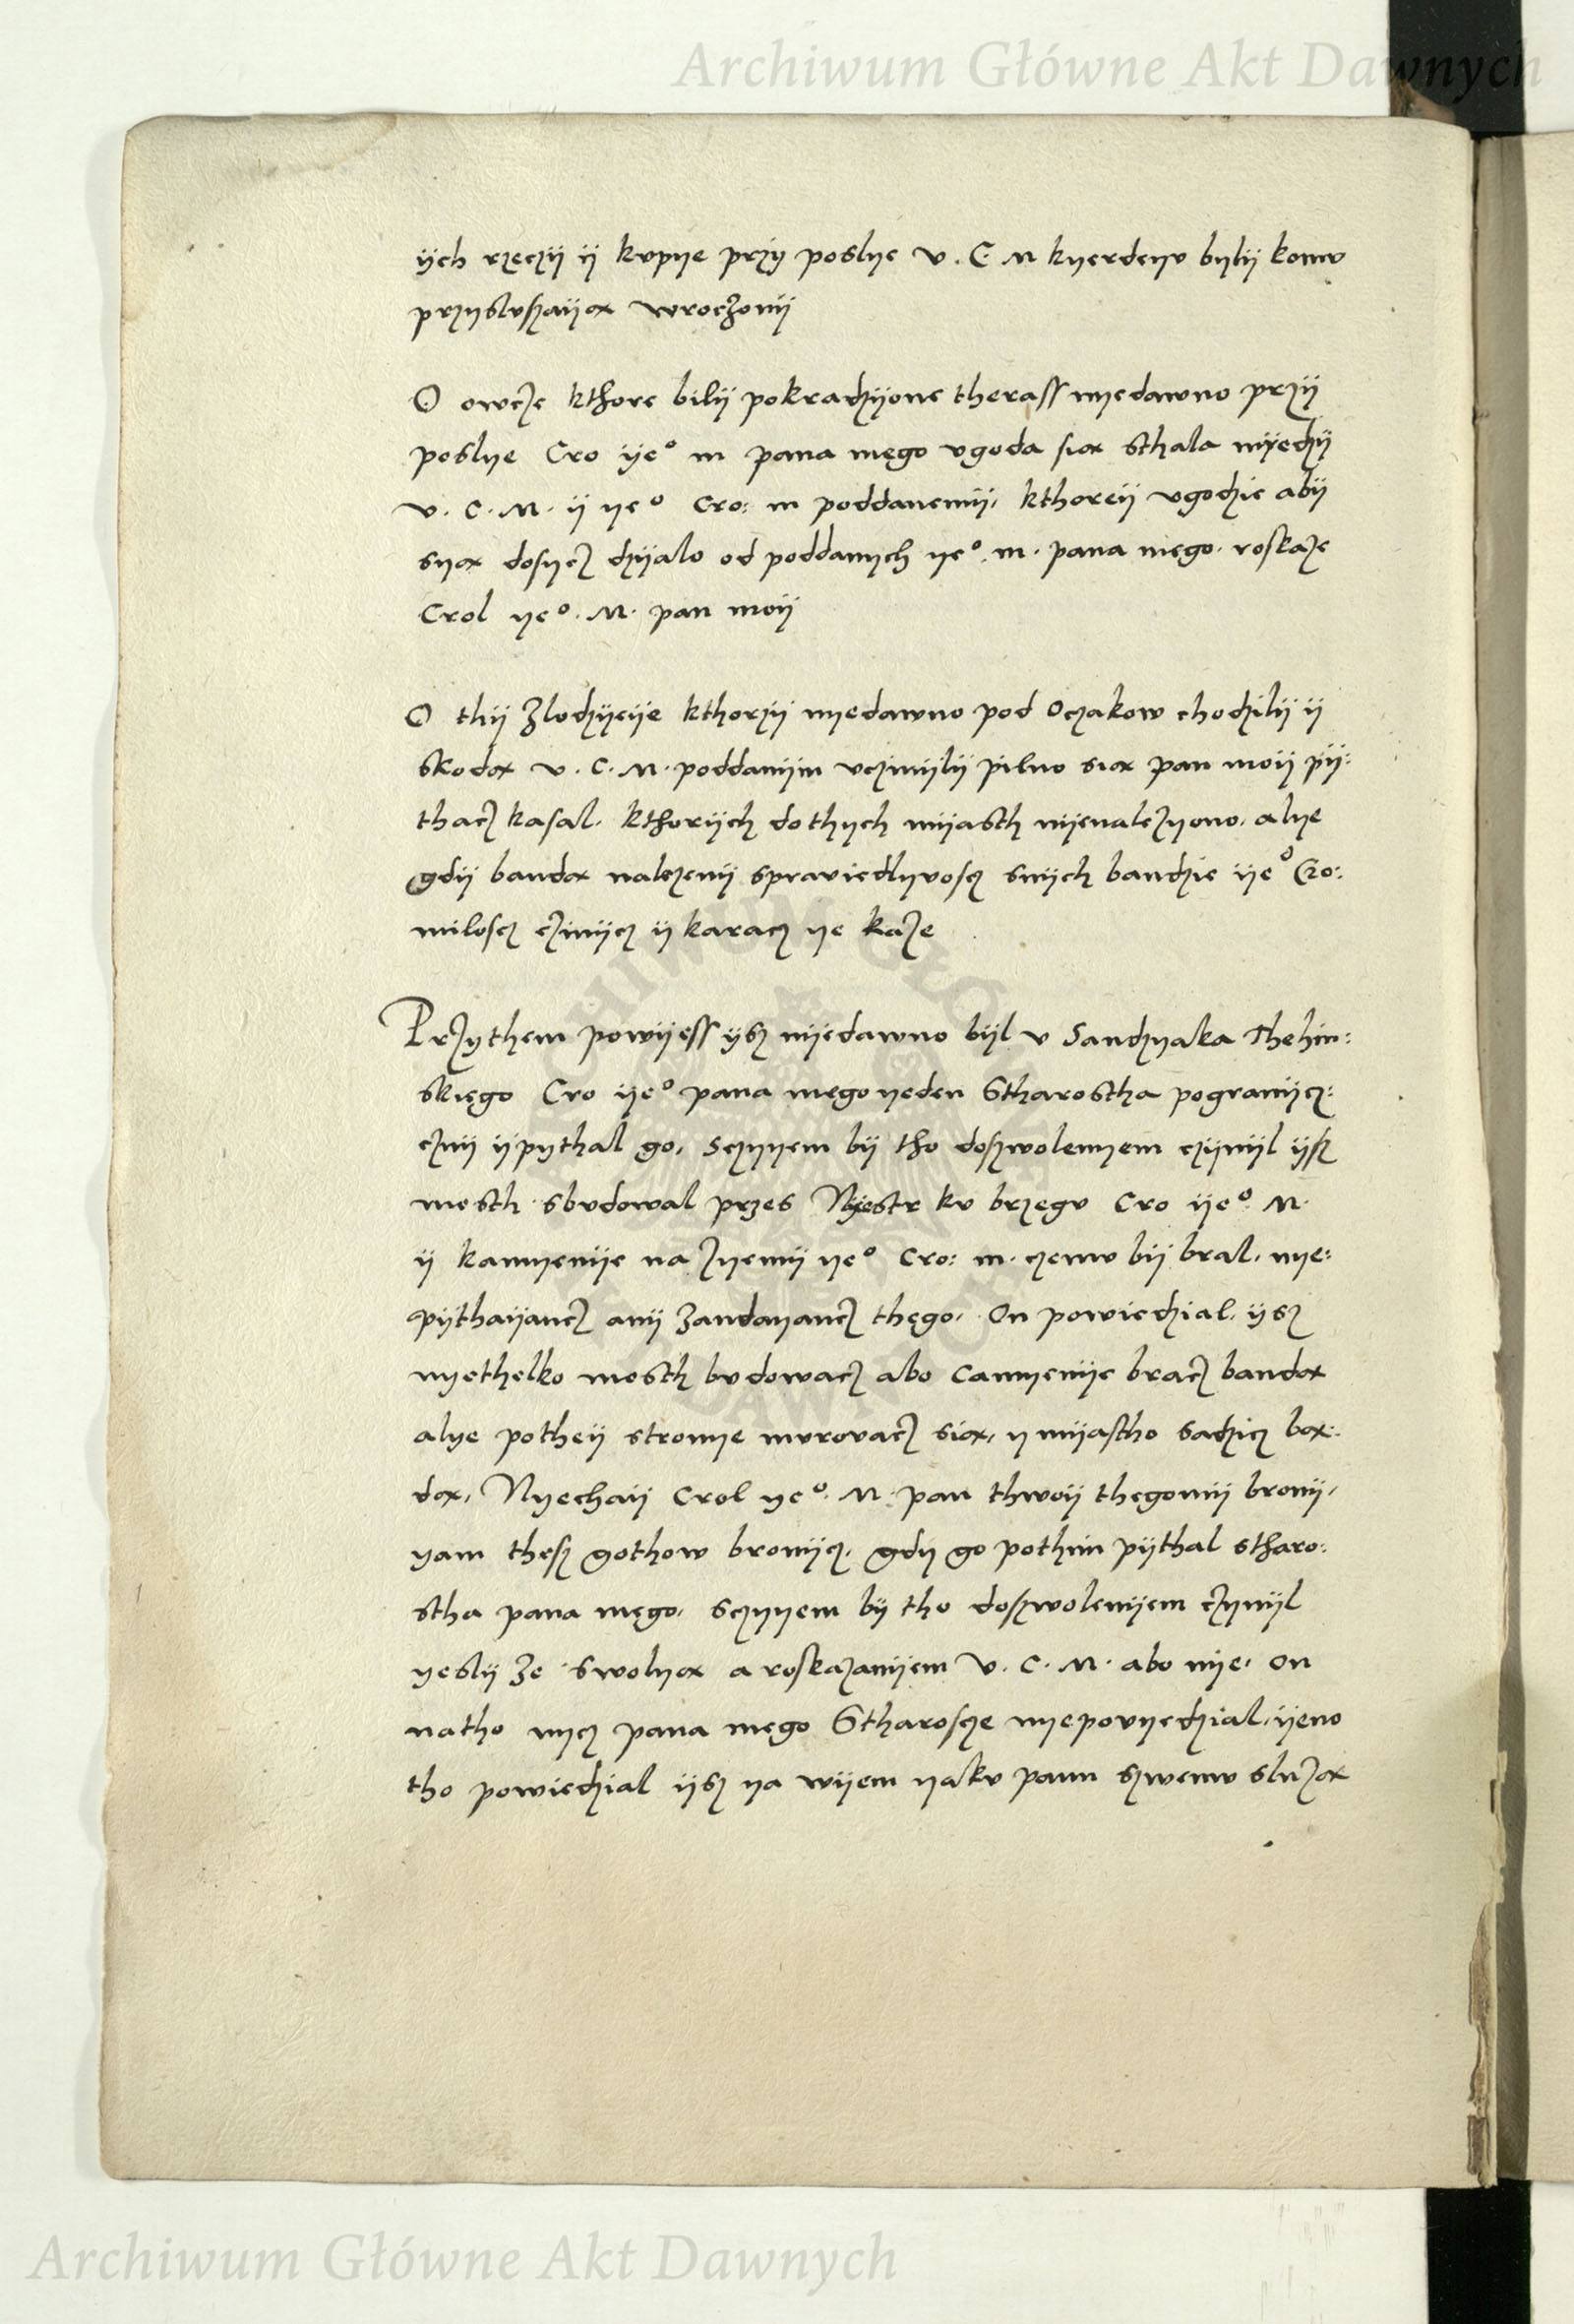 Archiwum Główne Akt Dawnych
ÿch rzeczÿ ÿ kupye przÿ poslye V. C. M kyerdeyu bÿlÿ komu
przyslushaÿą wroczonÿ
O owcze kthore bilÿ pokradzÿone therass nyedawno przÿ
poslye Cro ÿe° m pana mego ugoda sią sthala mÿedzÿ
v. C. M. ÿ ye° Cro: m poddanemÿ, kthoreÿ ugodzie abÿ
syą dosycz dzÿalo od poddanych ye°. m. pana mego. roskaze
Crol ye°. M. pan moÿ
O thÿ zlodzÿeÿe kthorzÿ nyedawno pod Oczakow chodzilÿ ÿ
skodą v. C. M. poddanÿm uczinÿlÿ pilno sią pan moÿ pÿ:
thacz kasal. kthorÿch do thych mÿasth nÿenalezyono, alye
gdÿ bandą nalezenÿ spraviedlyvoscz snÿch bandzie ÿe° Cro:
miloscz czinÿcz ÿ karacz ye kaze
Przythem powÿess ÿsz nÿedawno bÿl v Sandzyaka Thehin:
skiego Cro ÿe° pana mego yeden Stharostha pogranÿcz:
cznÿ ÿ pythal go, sczyyem bÿ tho doszwolenyem czÿnÿl ÿsz
mosth sbudowal przes Nyestr ku brzegu Cro ÿe°. M.
ÿ kamyenÿe na zyemÿ ye° Cro: m. czemu bÿ bral, nye:
pÿthaÿancz anÿ zandayancz thego, On powiedzial, ÿsz
nyethelko mosth budowacz abo camyenÿe bracz bandą
alye potheÿ stronye murovacz sią, y mÿastho sadzicz bą:
dą, Nyechaÿ Crol ye°. M. pan thwoÿ thegomÿ bronÿ,
yam thesz gothow bronÿcz, gdÿ go pothim pÿthal stharo:
stha pana mego, sczyyem bÿ tho doszwolenÿem czynÿl
yeslÿ ze swolyą a roskazanÿem V. C. M. abo nÿe, on
natho nycz pana mego Stharoscze nyepovyedzial, ÿeno
tho powiedzial ÿsz ya wÿem yako panu szwemu sluzą
Archiwum Główne Akt Dawnych